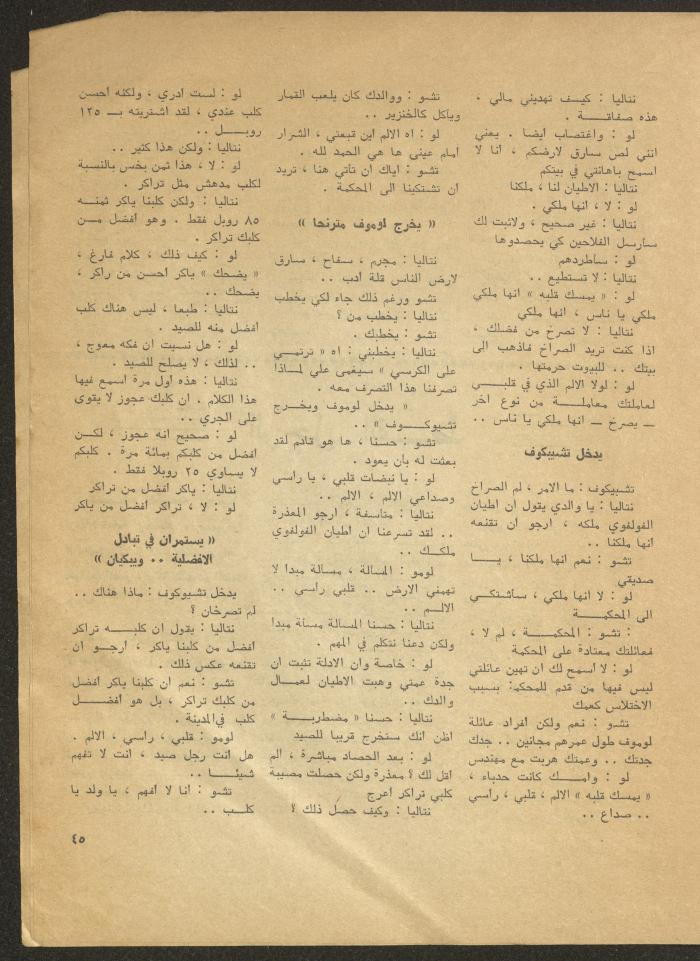 نتاليا : كيـف تهديني مالي ،
هذه صفاتــــة .
لو : واغتصاب ايضا . يعني
انني لص سارق لارضكم ، انا لا
اسمح باهانتي في بيتكم
نتاليا : الاطيان لنا ، ملكنا
لو : لا ، انها ملكي .
نتاليا : غير صحيح ، ولاثبت لك
سارسل الفلاحين كي يحصدوها
لو : ساطردهم
نتاليا : لا تستطيع ..
لو : « يمسك قلبه » انها ملكي
ملكي يا ناس ، انها ملكي
نتاليا : لا تصرخ من فضلك ،
اذا كنت تريد الصراخ فاذهب الى
بيتك .. للبيوت حرمتها .
لو : لولا الالم الذي في قلبــي
لعاملتك معاملـــة من نوع اخر
ــ يصرخ ــ انها ملكي يا ناس ..
يدخل تشيبكوف
تشيبكوف : ما الامر ، لم الصراخ
نتاليا : يا والدي يقول ان اطيان
الفولفوي ملكه ، ارجو ان تقنعه
انها ملكنا ..
تشو : نعم انها ملكنا ، يـــا
صديقي
لو : لا انها ملكي ، سأشتكــي
الى المحكمــــة
: تشو : المحكمــــة ، لم لا ،
فعائلتك معتادة على المحكمة
لو : لا أسمح لك ان تهين عائلتي
ليس فيها من قدم للمحكمة بسبب
الاختلاس كعمك
تشو : نعم ولكن افراد عائلة
لوموف طول عمرهم مجانين .. جدك
جدتك .. وعمتك هربت مع مهندس
لو : وامـــك كانت حدباء ،
« يمسك قلبه » الالم ، قلبي ، رأسي
.. صداع ..
تشو : ووالدك كان يلعب القمار
ويأكل كالخنزير ..
لو : اه الالم اين قبعتي ، الشرار
أمام عيني ها هي الحمد لله .
تشو : اياك ان تأتي هنا ، تريد
ان تشتكينا الى المحكمة .
« يخرج لوموف مترنحا »
نتاليا : مجرم ، سفاح ، سارق
لارض الناس قلة أدب ..
تشو ورغم ذلك جاء لكي يخطب
نتاليا : يخطب من ؟
تشو : يخطبك .
نتاليا : يخطبني : اه « ترتمــي
على الكرسي » سيغمى علي لمـاذا
تصرفنا هذا التصرف معه .
« يدخل لوموف ويخــرج
تشيوكـــوف » ..
تشو : حسنا ، ها هو قادم لقد
بعثت له بأن يعود .
لو : يا نبضات قلبي ، يا رأسي
وصداعي الالم ، الالم ..
نتاليا : متأسفة ، ارجو المعذرة
.. لقد تسرعنا ان اطيان الفولفوي
ملكــك ..
لومو : المسألة ، مسألة مبدا لا
تهمني الارض .. قلبي رأسي ..
الالــم ..
نتاليا : حسنا المسالة مسأة مبدا
ولكن دعنا نتكلم في المهم .
لو : خاصة وان الادلة تثبت ان
جدة عمتي وهبت الاطيان لعمــال
والدك ..
نتاليا : حسنا « مضطربــــة »
اظن انك ستخرج قريبا للصيد
لو : بعد الحصاد مباشرة ، الم
اقل لك ؟ معذرة ولكن حصلت مصيبة
كلبي تراكر أعرج
نتاليا : وكيف حصل ذلك ؟
لو : لست أدري ، ولكنه أحسن
كلب عندي ، لقد اشتريته بــ ١٢٥
روبــــل ..
نتاليا : ولكن هذا كثير ..
لو : لا ، هذا ثمن بخس بالنسبة
لكلب مدهش مثل تراكر .
نتاليا : ولكن كلبنا ياكر ثمنــه
٨٥ روبل فقط . وهو أفضل مــن
كلبك تراكر .
لو : كيف ذلك ، كلام فارغ ،
« يضحك » ياكر احسن من راكر ،
يضحك ..
نتاليا : طبعا ، ليس هناك كلب
أفضل منه للصيد .
لو : هل نسيت ان فكه معوج ،
.. لذلك ، لا يصلح للصيد .
نتاليا : هذه اول مرة اسمع فيها
هذا الكلام . ان كلبك عجوز لا يقوى
على الجري ..
لو : صحيح انه عجوز ، لكــن
أفضل من كلبكم بمائة مرة . كلبكم
لا يساوي ٢٥ روبلا فقط .
نتاليا : ياكر أفضل من تراكر
لو : لا ، تراكر أفضل من ياكر
« يستمران في تبادل
الافضلية .. ويبكيان »
يدخل تشيوكوف : ماذا هناك ..
لم تصرخان ؟
نتاليا : يقول ان كلبــــه تراكر
أفضل من كلبنا ياكر ، ارجــو ان
تقنعه عكس ذلك .
تشو : نعم ان كلبنا ياكر أفضل
من كلبك تراكر ، بل هو أفضــــل
كلب في المدينة .
لومو : قلبي ، رأسي ، الالم .
هل أنت رجل صيد ، أنت لا تفهم
شيئــــا ..
تشو : أنا لا أفهم ، يا ولد يا
كلــب ..
٤٥